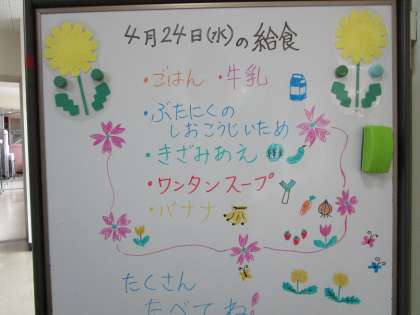 4月24日(水)の給食
・ごはん ・牛乳
・ぶたにくの
しおこうじいため
・きざみあえ
・ワンタンスープ
・バナナ
たくさん
たべてね!